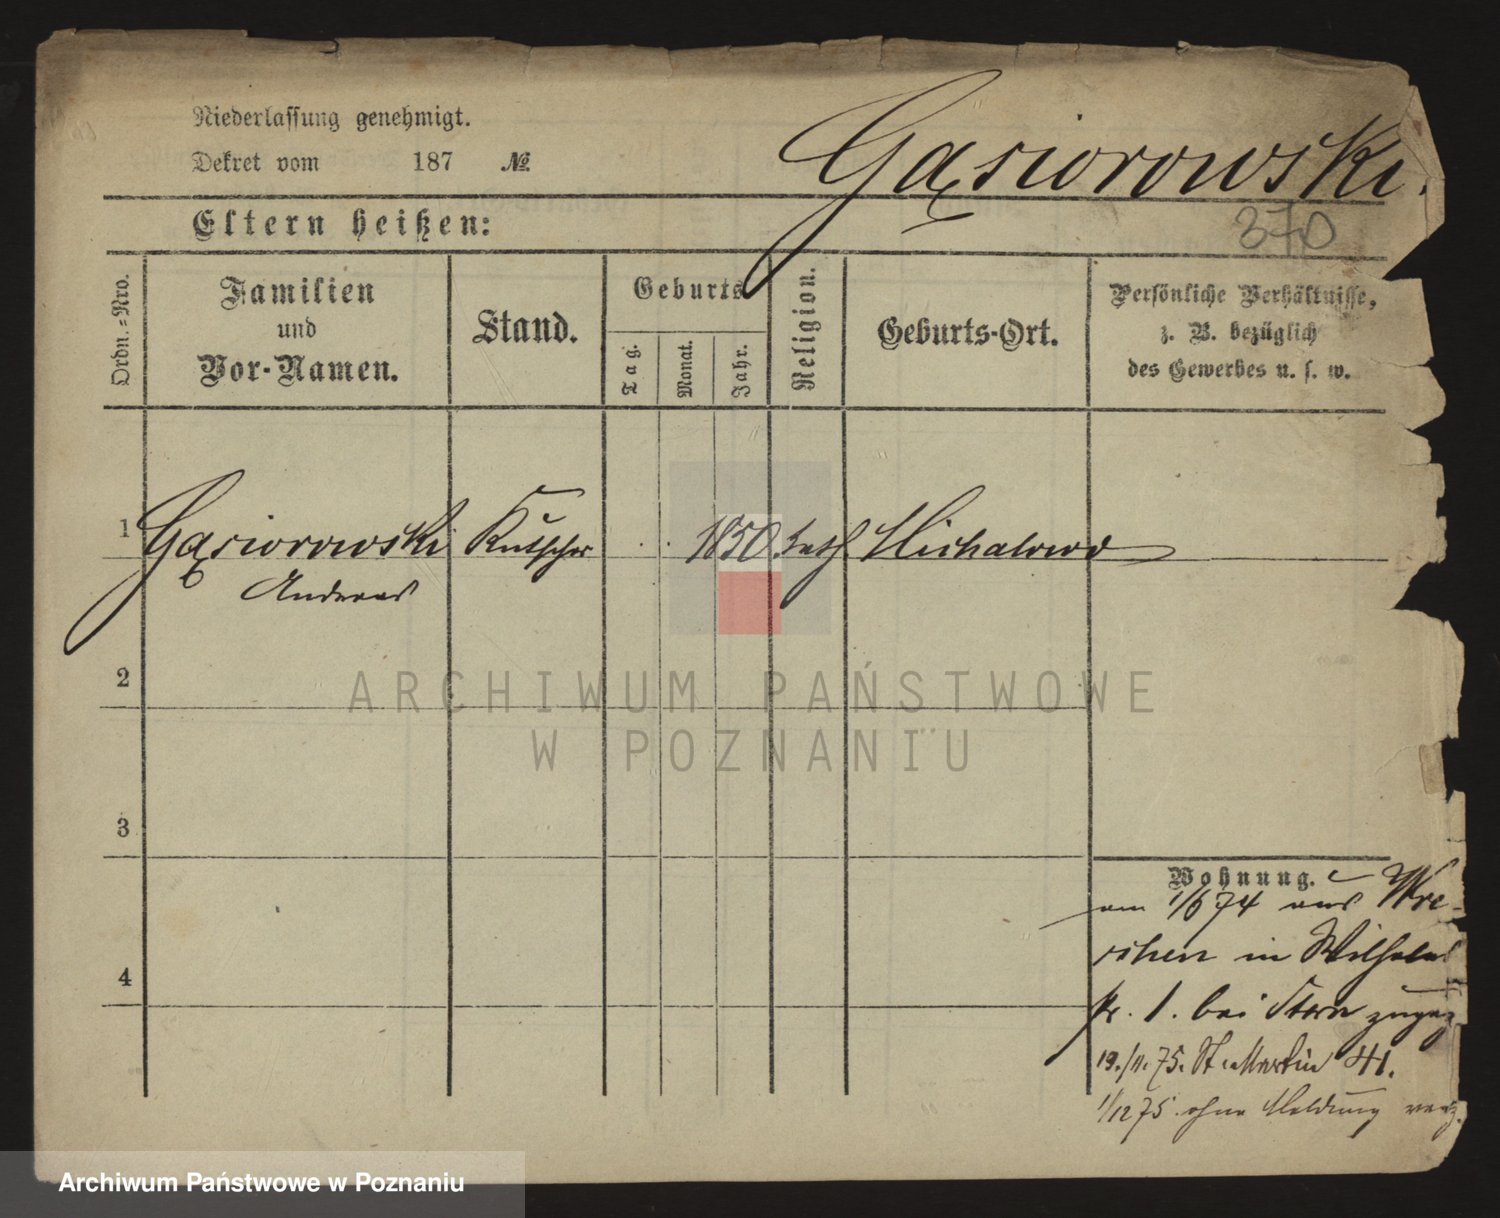 Niederlassung genehmigt.
Dekret vom 187 №
Gąsiorowski.
370
Eltern heißen:
Ordn.=Nro.
Familien
und
Vor-Namen.
Stand.
Geburts
Tag.
Monat.
Jahr.
Religion.
Geburts-Ort.
Persönliche Verhältnisse,
z. B. bezüglich
des Gewerbes u. s. w.
1 Gąsiorowski Kutscher 1850 kath. Michalowo
Andreas
2
3
4
Wohnung.
am 1/6 74 aus Wre-
schen in Wilhelm
str. 1. bei Stern zugez
19./11. 75. St. Martin 41.
1/12 75. ohne Meldung verz.
ARCHIWUM PAŃSTWOWE
W POZNANIU
Archiwum Państwowe w Poznaniu